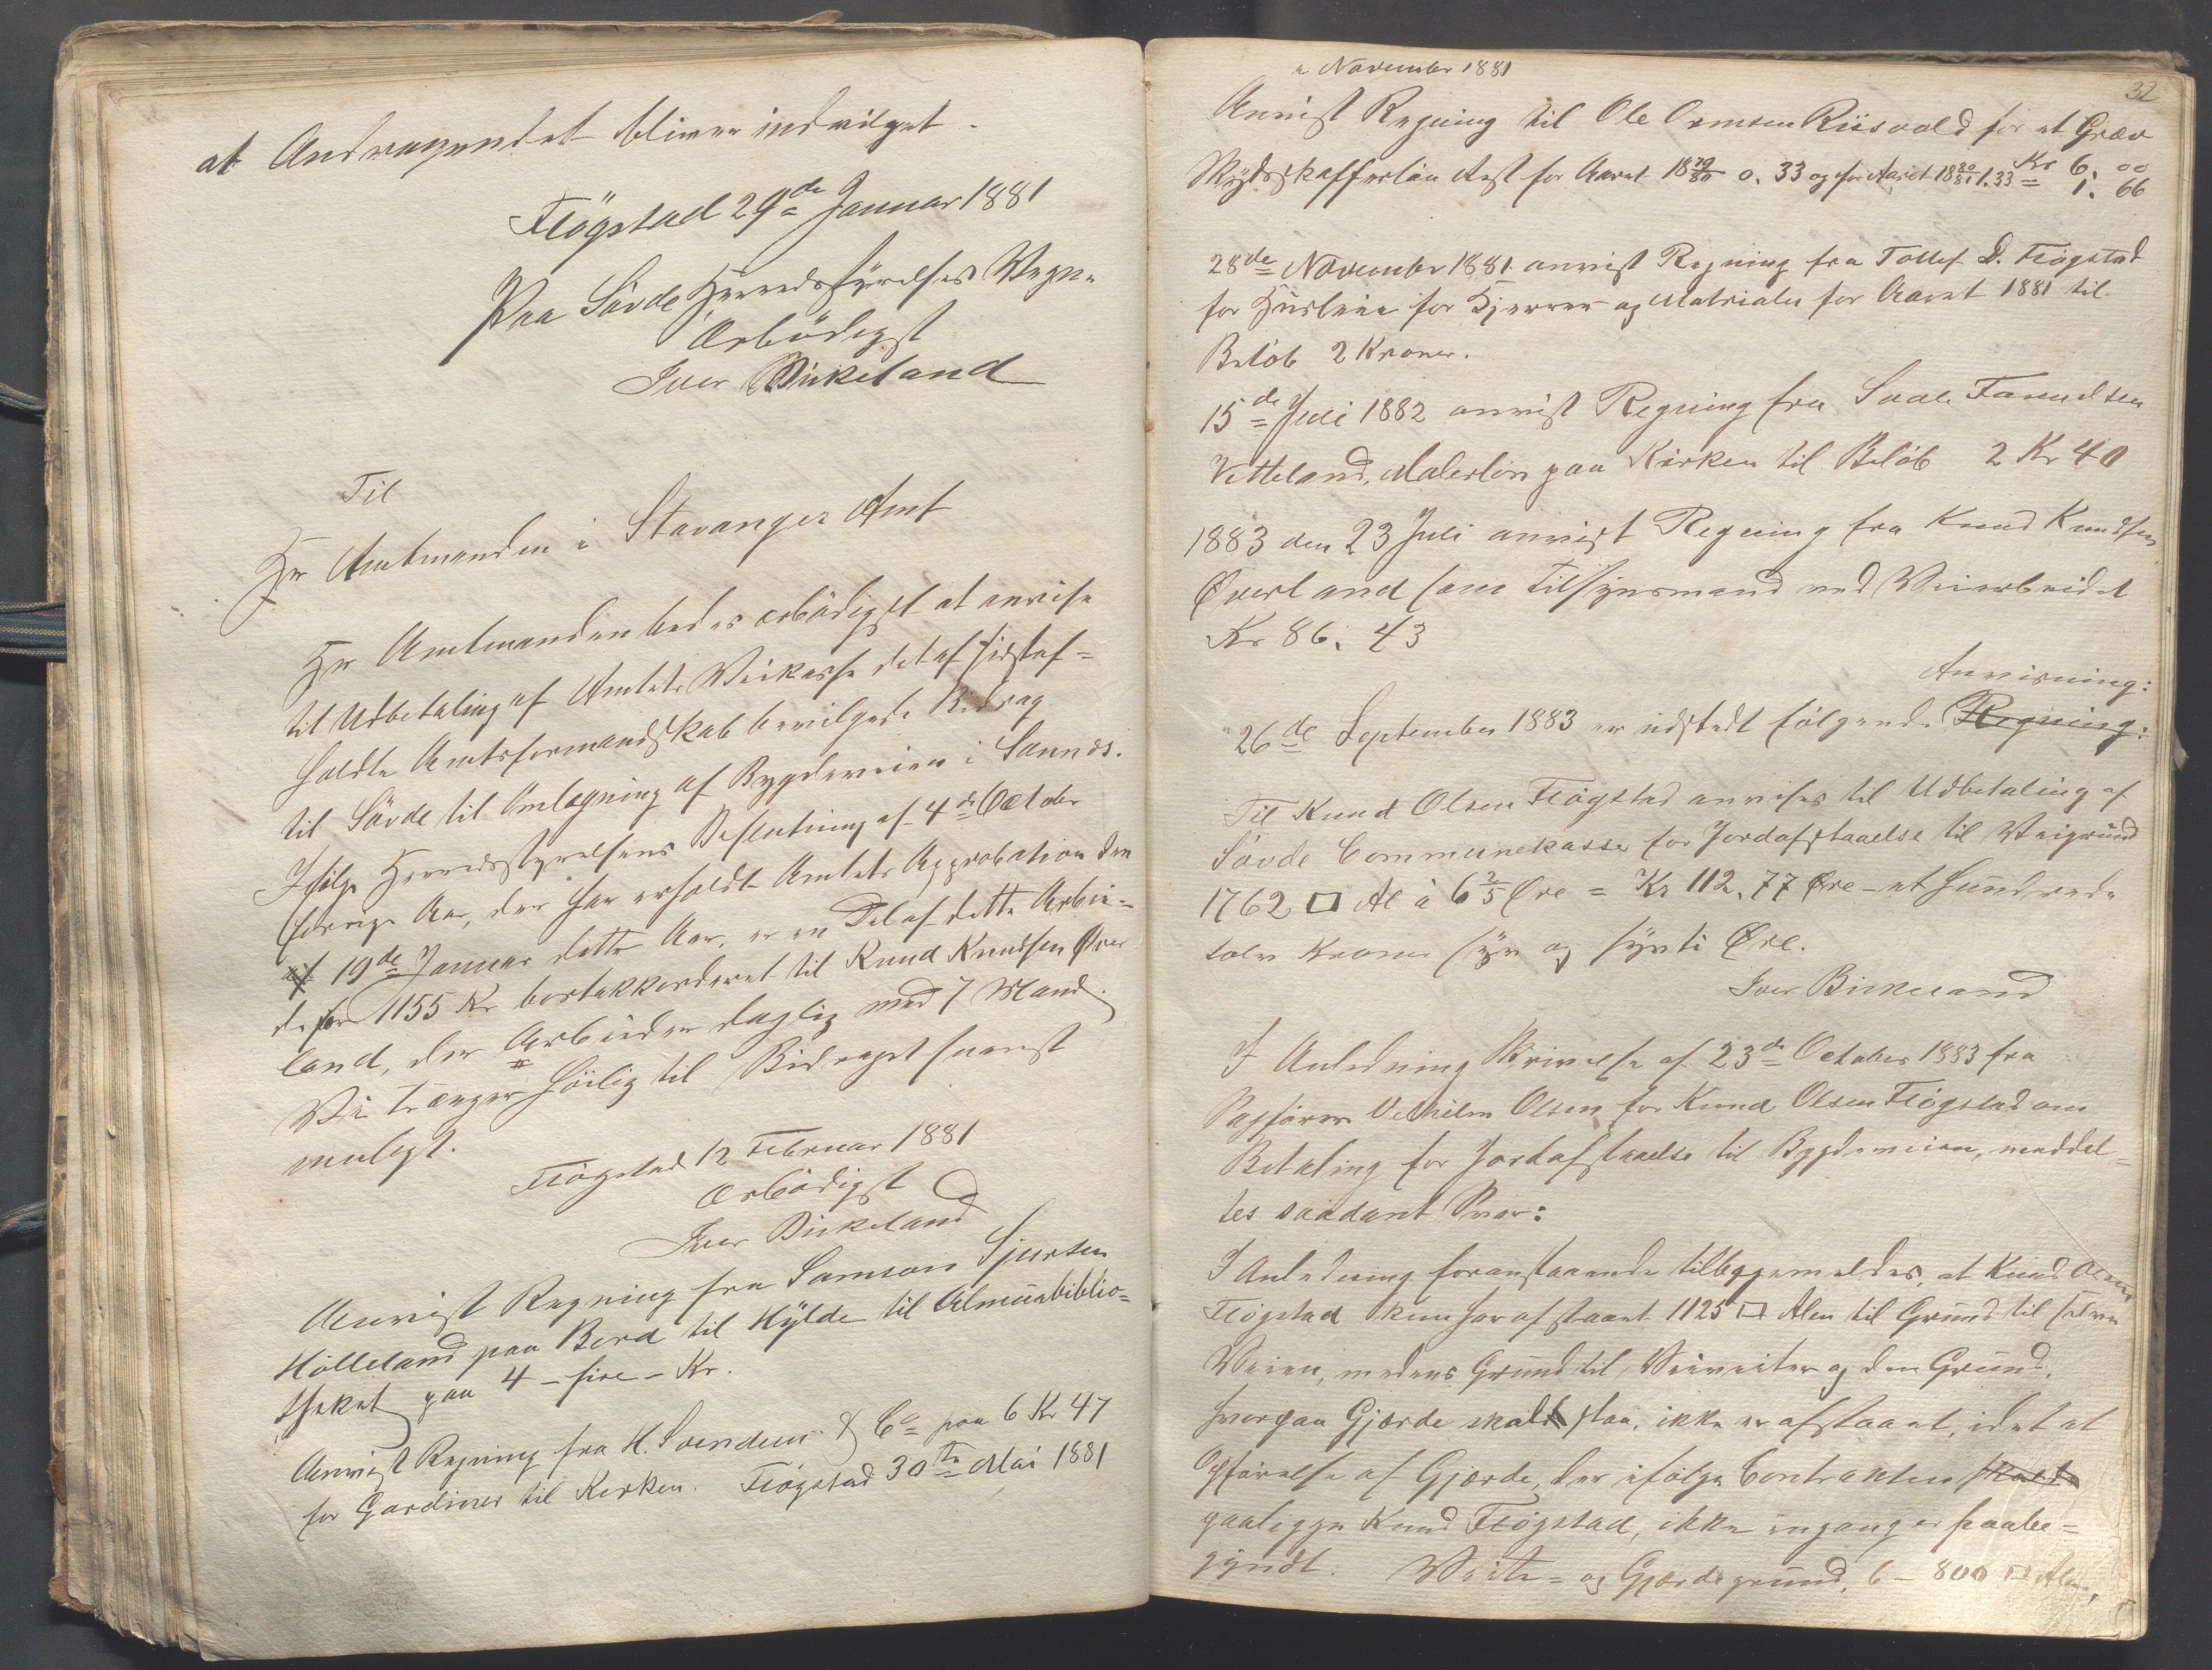 at Andragendet bliver indvilget.
Fløgstad 29de Januar 1881
Paa Søvde Herredsstyrelses Vegne
Ærbødigst
Iver Birkeland
Til
Hr Amtmanden i Stavanger Amt
Hr Amtmanden bedes ærbødigst at anvise
til Udbetaling af Amtets Veikasse det af sidstaf=
holdte Amtsformandskab bevilgede Bidrag
til Søvde til Omlægning af Bygdeveien i Saunds.
Ifølge Herredsstyrelsens Beslutning af 4de October
forrige Aar, der har erholdt Amtets Approbation den
19de Januar dette Aar, er en Del af dette Arbei=
de for 1155 Kr bortakkorderet til Knud Knudsen Øver
land, der Arbeider daglig med 7 Mand.
Vi trænger høilig til Bidraget snarest
muligt.
Fløgstad 12 Februar 1881
Ærbødigst
Iver Birkeland
Anvist Regning fra Samson Sjursen
Hølleland paa Bord til Hylde til Almuebiblio=
theket paa 4 - fire - Kr.
Anvist Regning fra H. Svendsen & Co paa 6 Kr 47
for Gardiner til Kirken. Fløgstad 30te Mai 1881
32
November 1881
Anvist Regning til Ole Ormsen Riisvold for et Græv
Skydsskafferløn Rest for Aaret 1879/80 0. 33 og for Aaret 1880/81 1.33 = Kr 6. 00
1. 66
28de November 1881 anvist Regning fra Tollef D. Fløgstad
for Husleie for Kjærrer og Materialer for Aaret 1881 til
Beløb 2 Kroner.
15de Juli 1882 anvist Regning fra Svale Tamudsen
Vetteland, Malerløn paa Kirken til Beløb 2 Kr 40
1883 den 23 Juli anvist Regning fra Knud Knudsen
Øverland som Tilsynsmand ved Veiarbeidet
Kr 86. 43
Anvisning:
26de September 1883 er udstedt følgende Regning:
Til Knud Olsen Fløgstad anvises til Udbetaling af
Søvde Communekasse for Jordafstaaelse til Veigrund
1762 □ Al à 6 2/5 Øre = Kr 112. 77 Øre - et hundrede
tolv Kroner syv og syvti Øre.
Iver Birkeland
I Anledning Skrivelse af 23de October 1883 fra
Sagfører Vilhelm Olsen for Knud Olsen Fløgstad om
Betaling for Jordafstaaelse til Bygdeveien, meddel=
tes saadant Svar:
I Anledning foranstaaende tilbagemeldes, at Knud Olsen
Fløgstad kun har afstaaet 1125 □ Alen til Grund til selve
Veien, medens Grund til Veiveiter og den Grund,
hvorpaa Gjærde skal staa, ikke er afstaaet, idet at
Opførelse af Gjærde, der ifølge Contrakten skulde
paaligge Knud Fløgstad, ikke engang er paabe=
gyndt. Veite= og Gjærdegrund, 6 - 800 □ Alen,